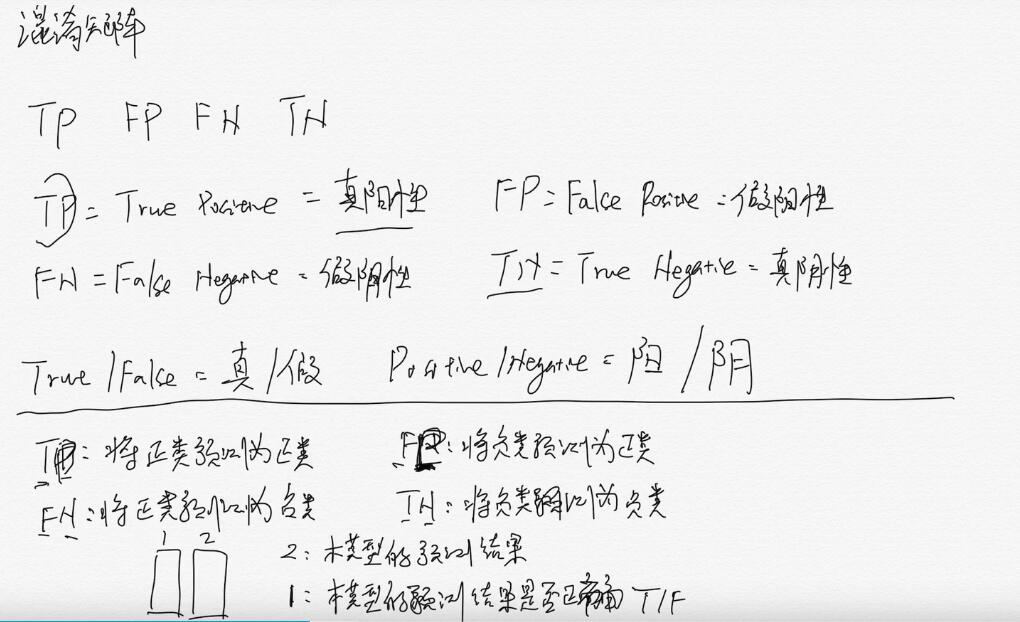 混淆矩阵
TP FP FN TN
TP = True Positive = 真阳性 FP = False Positive = 假阳性
FN = False Negative = 假阴性 TN = True Negative = 真阴性
True / False = 真 / 假 Positive / Negative = 阳 / 阴
TP: 将正类预测为正类 FP: 将负类预测为正类
FN: 将正类预测为负类 TN: 将负类预测为负类
1 2
2: 本模型的预测结果
1: 本模型的预测结果是否正确 T/F